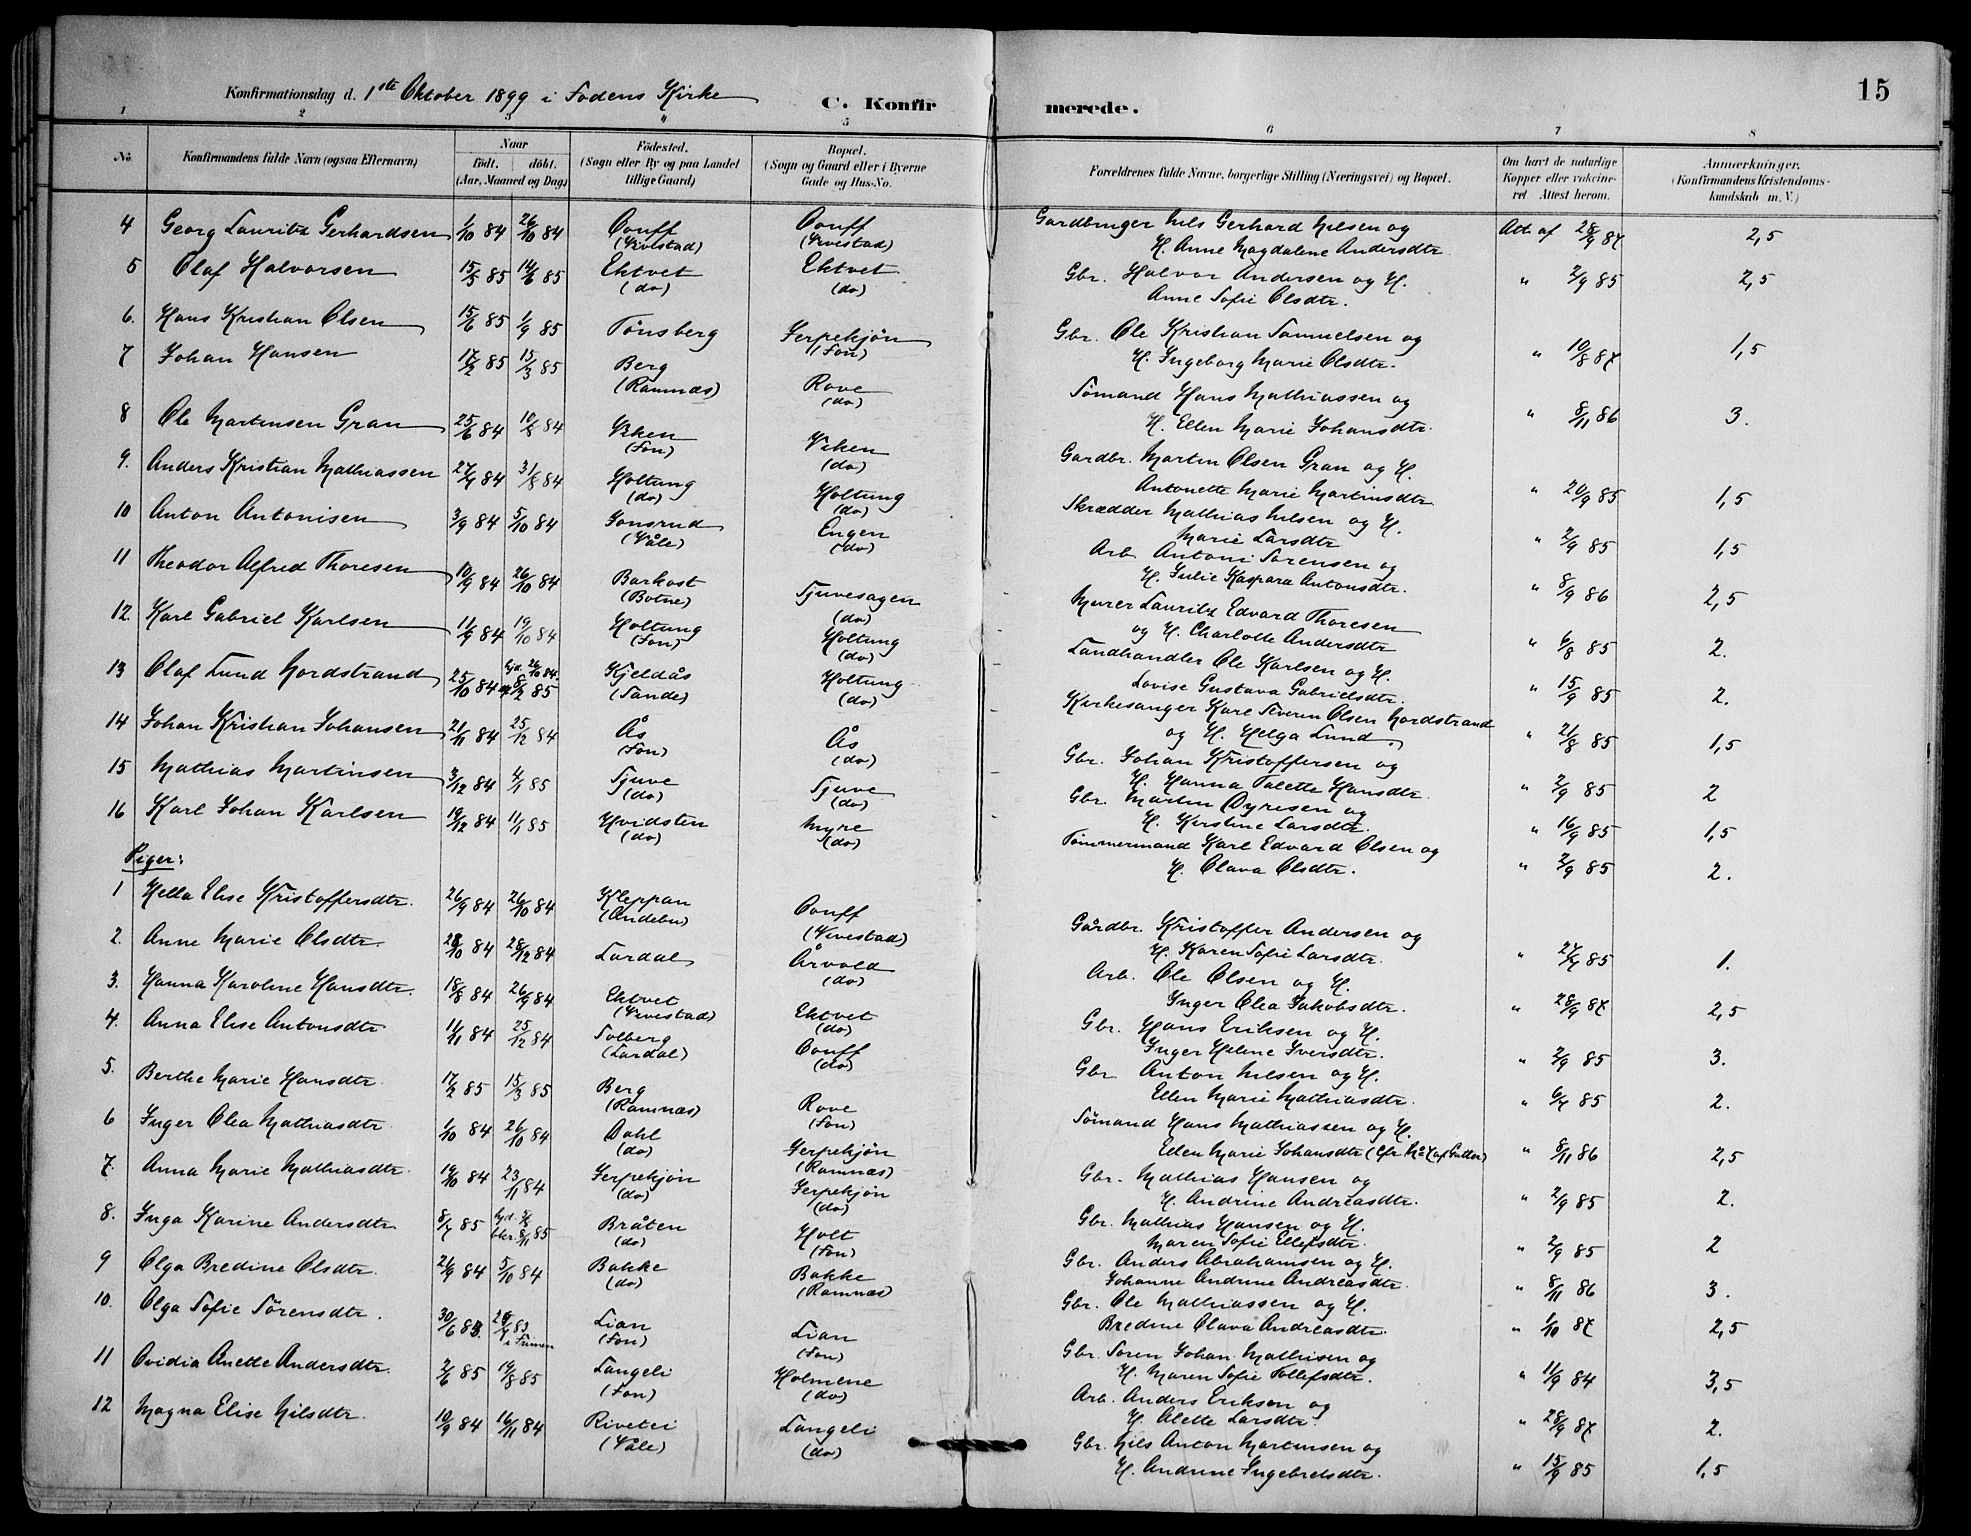 15
Konfirmationsdag d. 1ste Oktober 1899 i Fodens Kirke C. Konfirmerede.
1 2 3 4 5 6 7 8
No Konfirmandens fulde Navn (ogsaa Efternavn) Naar født. døbt. (Aar, Maaned og Dag) Fødested. (Sogn eller By og paa Landet tillige Gaard) Bopæl. (Sogn og Gaard eller i Byerne Gade og Hus-No. Forældrenes fulde Navne, borgerlige Stilling (Næringsvei) og Bopæl. Om havt de naturlige Kopper eller vakcineret. Attest herom. Anmærkninger. (Konfirmandens Kristendomskundskab m. V.)
4 Georg Lauritz Gerhardsen 1/10 84 26/10 84 (Vivestad) (Vivestad) Gardbruger Nils Gerhard Nilsen og H. Anne Magdalene Andersdtr. Att. af 28/9 87 2,5
5 Olaf Halvorsen 15/3 85 14/6 85 Ektvet (do) Ektvet (do) Gbr. Halvor Andersen og H. Anne Sofie Olsdtr. " 2/9 85 2,5
6. Hans Kristian Olsen 15/6 85 1/9 85 Tønsberg Jerpekjøn (Fon) Gbr. Ole Kristian Samuelsen og H. Ingeborg Marie Olsdtr. " 10/8 87 1,5
7 Johan Hansen 17/2 85 15/3 85 Berg (Ramnæs) Rove (do) Sømand Hans Mathiassen og H. Ellen Marie Johansdtr. " 8/11 86 3.
8 Ole Martinsen Gran 25/6 84 10/8 84 Viken (Fon) Viken (do) Gardbr. Martin Olsen Gran og H. Antonette Marie Martinsdtr. " 20/9 85 1,5
9. Anders Kristian Mathiassen 31/8 84 Holtung (do) Holtung (do) Skrædder Mathias Nilsen og H. Marie Larsdtr. " 2/9 85 1,5
10 Anton Antonisen 3/9 84 5/10 84 Jonsrud (Våle) Engen (do) Arb. Antoni Sørensen og H. Julie Kaspara Antonsdtr. " 8/9 86 2,5
11 Theodor Alfred Thoresen 10/9 84 26/10 84 Barkost (Botne) Tjuvesagen (do) Murer Lauritz Edvard Thoresen og H. Charlotte Andersdtr " 6/8 85 2.
12. Karl Gabriel Karlsen 11/9 84 19/10 84 Holtung (Fon) Holtung (do) Landhandler Ole Karlsen og H. Lovise Gustava Gabrielsdtr. " 15/9 85 2.
13 Olaf Lund Nordstrand 25/10 84 hjd. 26/10 84. 8/2 85 Kjeldås (Sande) Holtung (do) Kirkesanger Karl Severin Olsen Nordstrand og H. Helga Lund. " 21/8 85 1,5
14 Johan Kristian Johansen 21/11 84 25/12 84 Ås (Fon) Ås (do) Gbr. Johan Kristoffersen og H. Hanna Talette Hansdtr. " 2/9 85 2
15 Mathias Martinsen 3/12 84 4/1 85 Tjuve (do) Tjuve (do) Gbr. Martin Dyresen og H. Kirstine Larsdtr. " 16/9 85 1,5
16 Karl Johan Karlsen 19/12 84 11/1 85 Hvidsten (do) Myre (do) Tømmermand Karl Edvard Olsen og H. Olava Olsdtr. " 2/9 85 2.
Piger:
1 Hella Elise Kristoffersdtr. 26/9 84 26/10 84 Kleppan (Andebu) (Vivestad) Gårdbr. Kristoffer Andersen og H. Karen Sofie Larsdtr. 85 1.
2. Anne Marie Olsdtr. 84 28/12 84 Lardal Årvold (do) Arb. Ole Olsen og H. Inger Olea Jakobsdtr. " 28/9 87 2,5
3. Hanna Karoline Hansdtr. 18/8 84 26/9 84 Ektvet (Vivestad) Ektvet (do) Gbr. Hans Eriksen og H. Inger Helene Iversdtr. " 2/9 85 3.
4. Anna Elise Antonsdtr 11/11 84 25/12 84 Solberg (Lardal) (do) Gbr Anton Nilsen og H. Ellen Marie Mathiasdtr. " 85 2.
5. Berthe Marie Hansdtr. 17/2 85 15/3 85 Berg (Ramnæs) Rove (Fon) Sømand Hans Mathiassen og H. Ellen Marie Johansdtr (cfr. No 7 af Gutter) " 8/11 86 2,5
6 Inger Olea Mathiasdtr. 1/10 84 26/10 84 Dahl (do) Jerpekjøn (Ramnæs) Gbr. Mathias Hansen og H. Andrine Andreasdtr. " 2/9 85 2.
7. Anna Marie Mathiasdtr. 19/10 84 23/11 84 Jerpekjøn (do) Jerpekjøn (do) Gbr. Mathias Hansen og H. Maren Sofie Ellefsdtr. " 2/9 85 2
8. Inga Karine Andersdtr. 85 hjd. 8/11 85 Bråten (do) Holt (Fon) Gbr. Anders Abrahamsen og H. Johanne Andrine Andreasdtr. " 8/11 86 3.
9 Olga Bredine Olsdtr. 21/9 84 5/10 84 Bakke (do) Bakke (Ramnæs) Gbr. Ole Mathiassen og H. Bredine Olava Andreasdtr. " 1/10 87 2,5
10. Olga Sofie Sørensdtr. 30/6 83 Lian (Fon) Lian (Fon) Gbr. Søren Johan Mathisen og H. Maren Sofie Tollefsdtr. " 11/9 84 3,5
11 Ovidia Anette Andersdtr. 2/6 85 19/8 85 Langeli (Fon) Holmene (do) Arb. Anders Eriksen og H. Alette Larsdtr. " 28/9 87 2.
12 Magna Elise Nilsdtr. 10/9 84 16/11 84 Rivetei (Våle) Langeli (do) Gbr. Nils Anton Martinsen og H. Andrine Ingebretsdtr. " 15/9 85 1,5